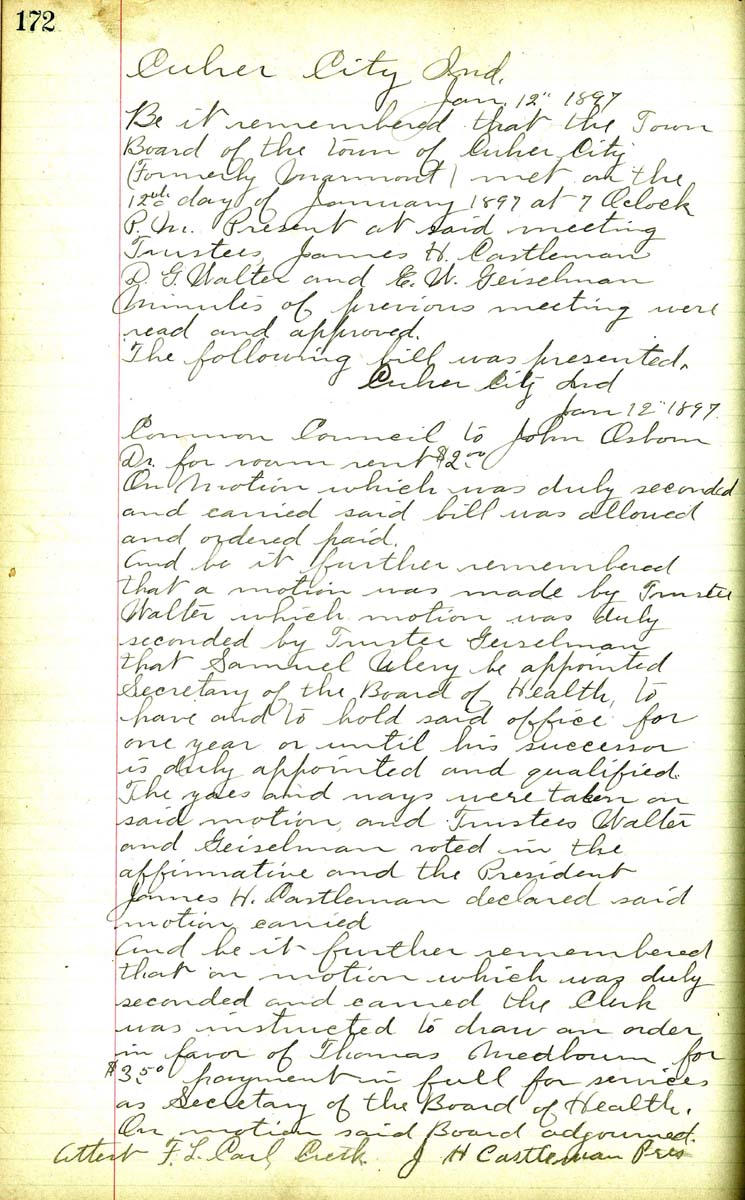 172
Culver City Ind.
Jan. 12" 1897
Be it remembered that the Town
Board of the town of Culver City
(Formerly Marmont) met on the
12th day of January 1897 at 7 Oclock
P.M. Present at said meeting
Trustees, James H. Castleman
D. G. Walter and E. W. Geiselman
Minutes of previous meeting were
read and approved.
The following bill was presented.
Culver City Ind
Jan 12" 1897.
Common Council to John Osborn
Dr. for room rent $2.00
On Motion which was duly seconded
and carried said bill was allowed
and ordered paid.
And be it further remembered
that a motion was made by Trustee
Walter which motion was duly
seconded by Trustee Geiselman
that Samuel Ulery be appointed
Secretary of the Board of Health, to
have and to hold said office for
one year or until his successor
is duly appointed and qualified.
The yaes and nays were taken on
said motion, and Trustees Walter
and Geiselman voted in the
affirmative and the President
James H. Castleman declared said
motion carried
And be it further remembered
that on motion which was duly
seconded and carried the Clerk
was instructed to draw an order
in favor of Thomas Medbourn for
$3.50 payment in full for services
as Secretary of the Board of Health.
On motion said Board adgourned.
Attest F. L. Carl Clerk. J H Castleman Pres